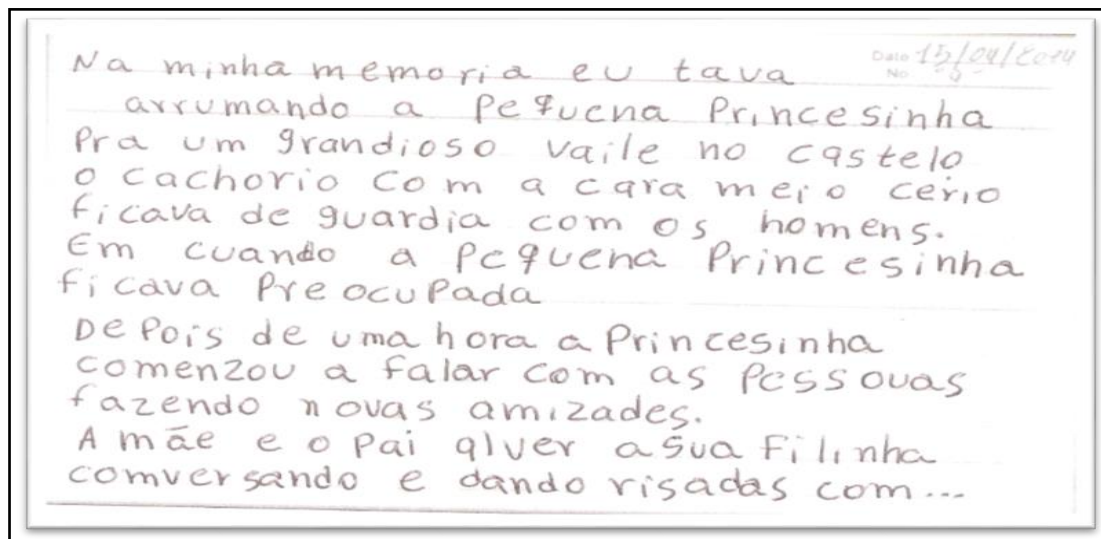 Date 15/04/2014
No
Na minha memoria eu tava
arrumando a Pequena Princesinha
Pra um grandioso vaile no castelo
o cachorio com a cara meio cerio
ficava de guardia com os homens.
Em cuando a Pequena Princesinha
ficava Preocupada
DePois de uma hora a Princesinha
comenzou a falar com as Pessouas
fazendo novas amizades.
A mãe e o Pai alver a sua Filinha
comversando e dando risadas com...